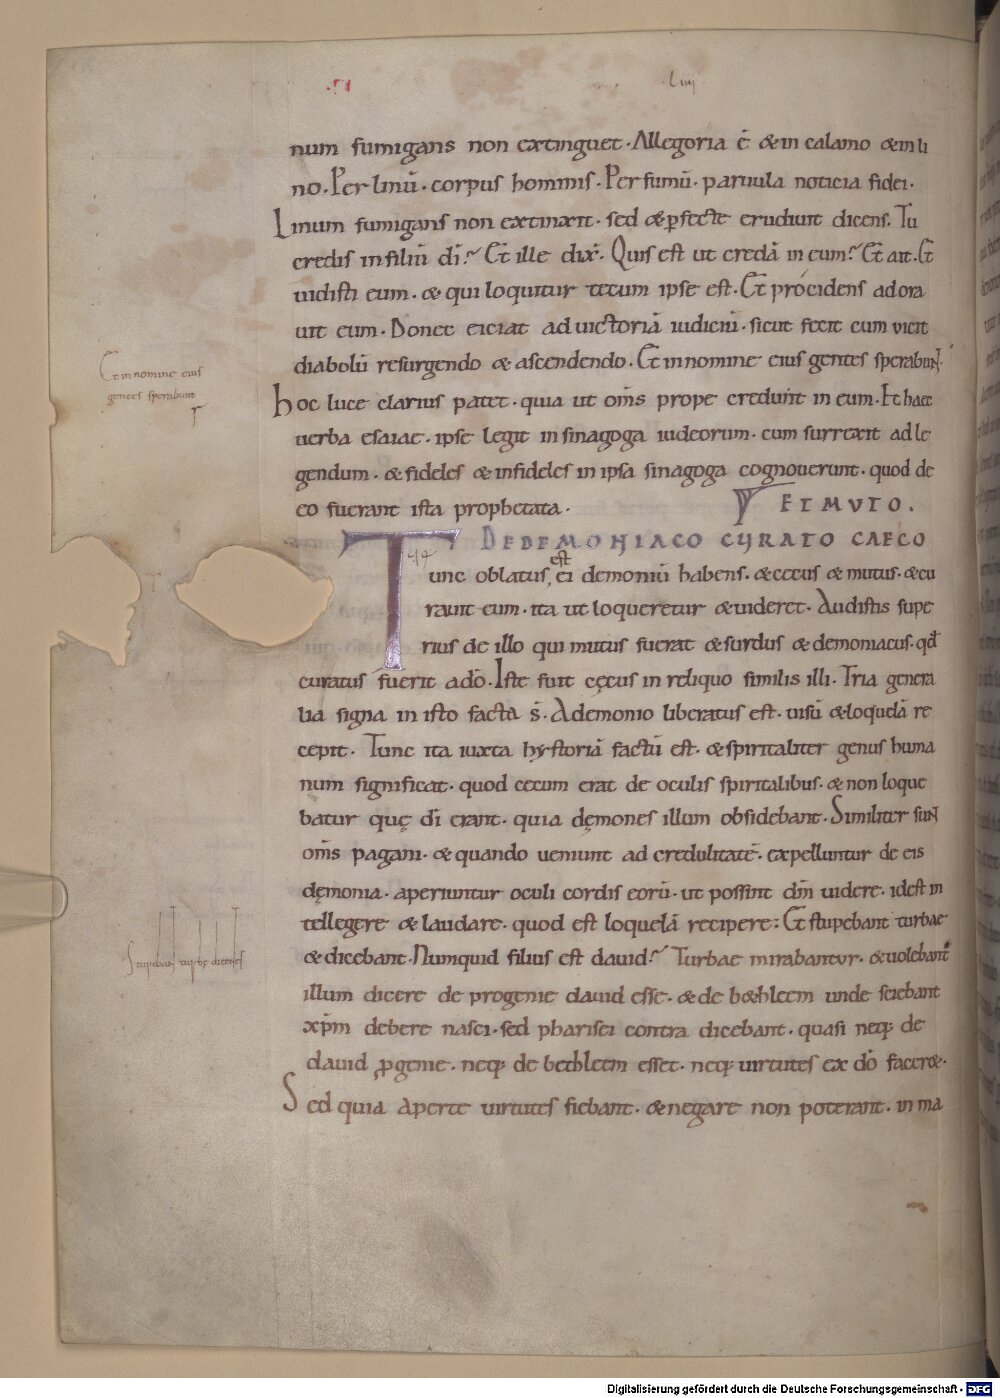 liiij
num fumigans non extinguet. Allegoria ē & in calamo & in li
no. Per linū. corpus hominis. Per fumū. paruula noticia fidei.
Linum fumigans non extinxit. sed & pfecte erudiuit dicens. Tu
credis in filiū di? Et ille dix. Quis est ut credā in eum? Et ait. Et
uidisti eum. & qui loquitur tecum ipse est. Et procidens adora
uit eum. Donec eiciat ad uictoriā iudiciū. sicut fecit cum uicit
diabolū resurgendo & ascendendo. Et in nomine eius gentes sperabunt.
Et in nomine eius
gentes sperabunt
hoc luce clarius patet. quia ut om̄s prope credunt in eum. Et haec
uerba esaiae. ipse legit in sinagoga iudeorum. cum surrexit ad le
gendum. & fideles & infideles in ipsa sinagoga cognouerunt. quod de
eo fuerant ista prophetata.
ET MVTO.
DE DEMONIACO CVRATO CAECO
Tunc oblatus est ei demoniū habens. & cecus & mutus. & cu
rauit eum. ita ut loqueretur & uideret. Audistis supe
rius de illo qui mutus fuerat & surdus & demoniacus. qđ
curatus fuerit a dō. Iste fuit cęcus in reliquo similis illi. Tria genera
lia signa in isto facta s̄. A demonio liberatus est. uisū & loquelā re
cepit. Tunc ita iuxta hystoriā factū est. & spiritaliter genus huma
num significat. quod cecum erat de oculis spiritalibus. & non loque
batur quę di erant. quia dęmones illum obsidebant. Similiter sunt
om̄s pagani. & quando ueniunt ad credulitatē. expelluntur de eis
dęmonia. aperiuntur oculi cordis eorū. ut possint dm̄ uidere. id est in
tellegere & laudare. quod est loquelā recipere: Et stupebant turbae
& dicebant. Numquid filius est dauid? Turbae mirabantur. & uolebant
Stupebant turbę dicentes
illum dicere de progenie dauid esse. & de b&hleem unde sciebant
xp̄m debere nasci. sed pharisei contra dicebant. quasi neq; de
dauid pgenie. neq; de bethleem esset. neq; uirtutes ex dō facer&.
Sed quia aperte uirtutes fiebant. & negare non poterant. in ma
Digitalisierung gefördert durch die Deutsche Forschungsgemeinschaft - DFG